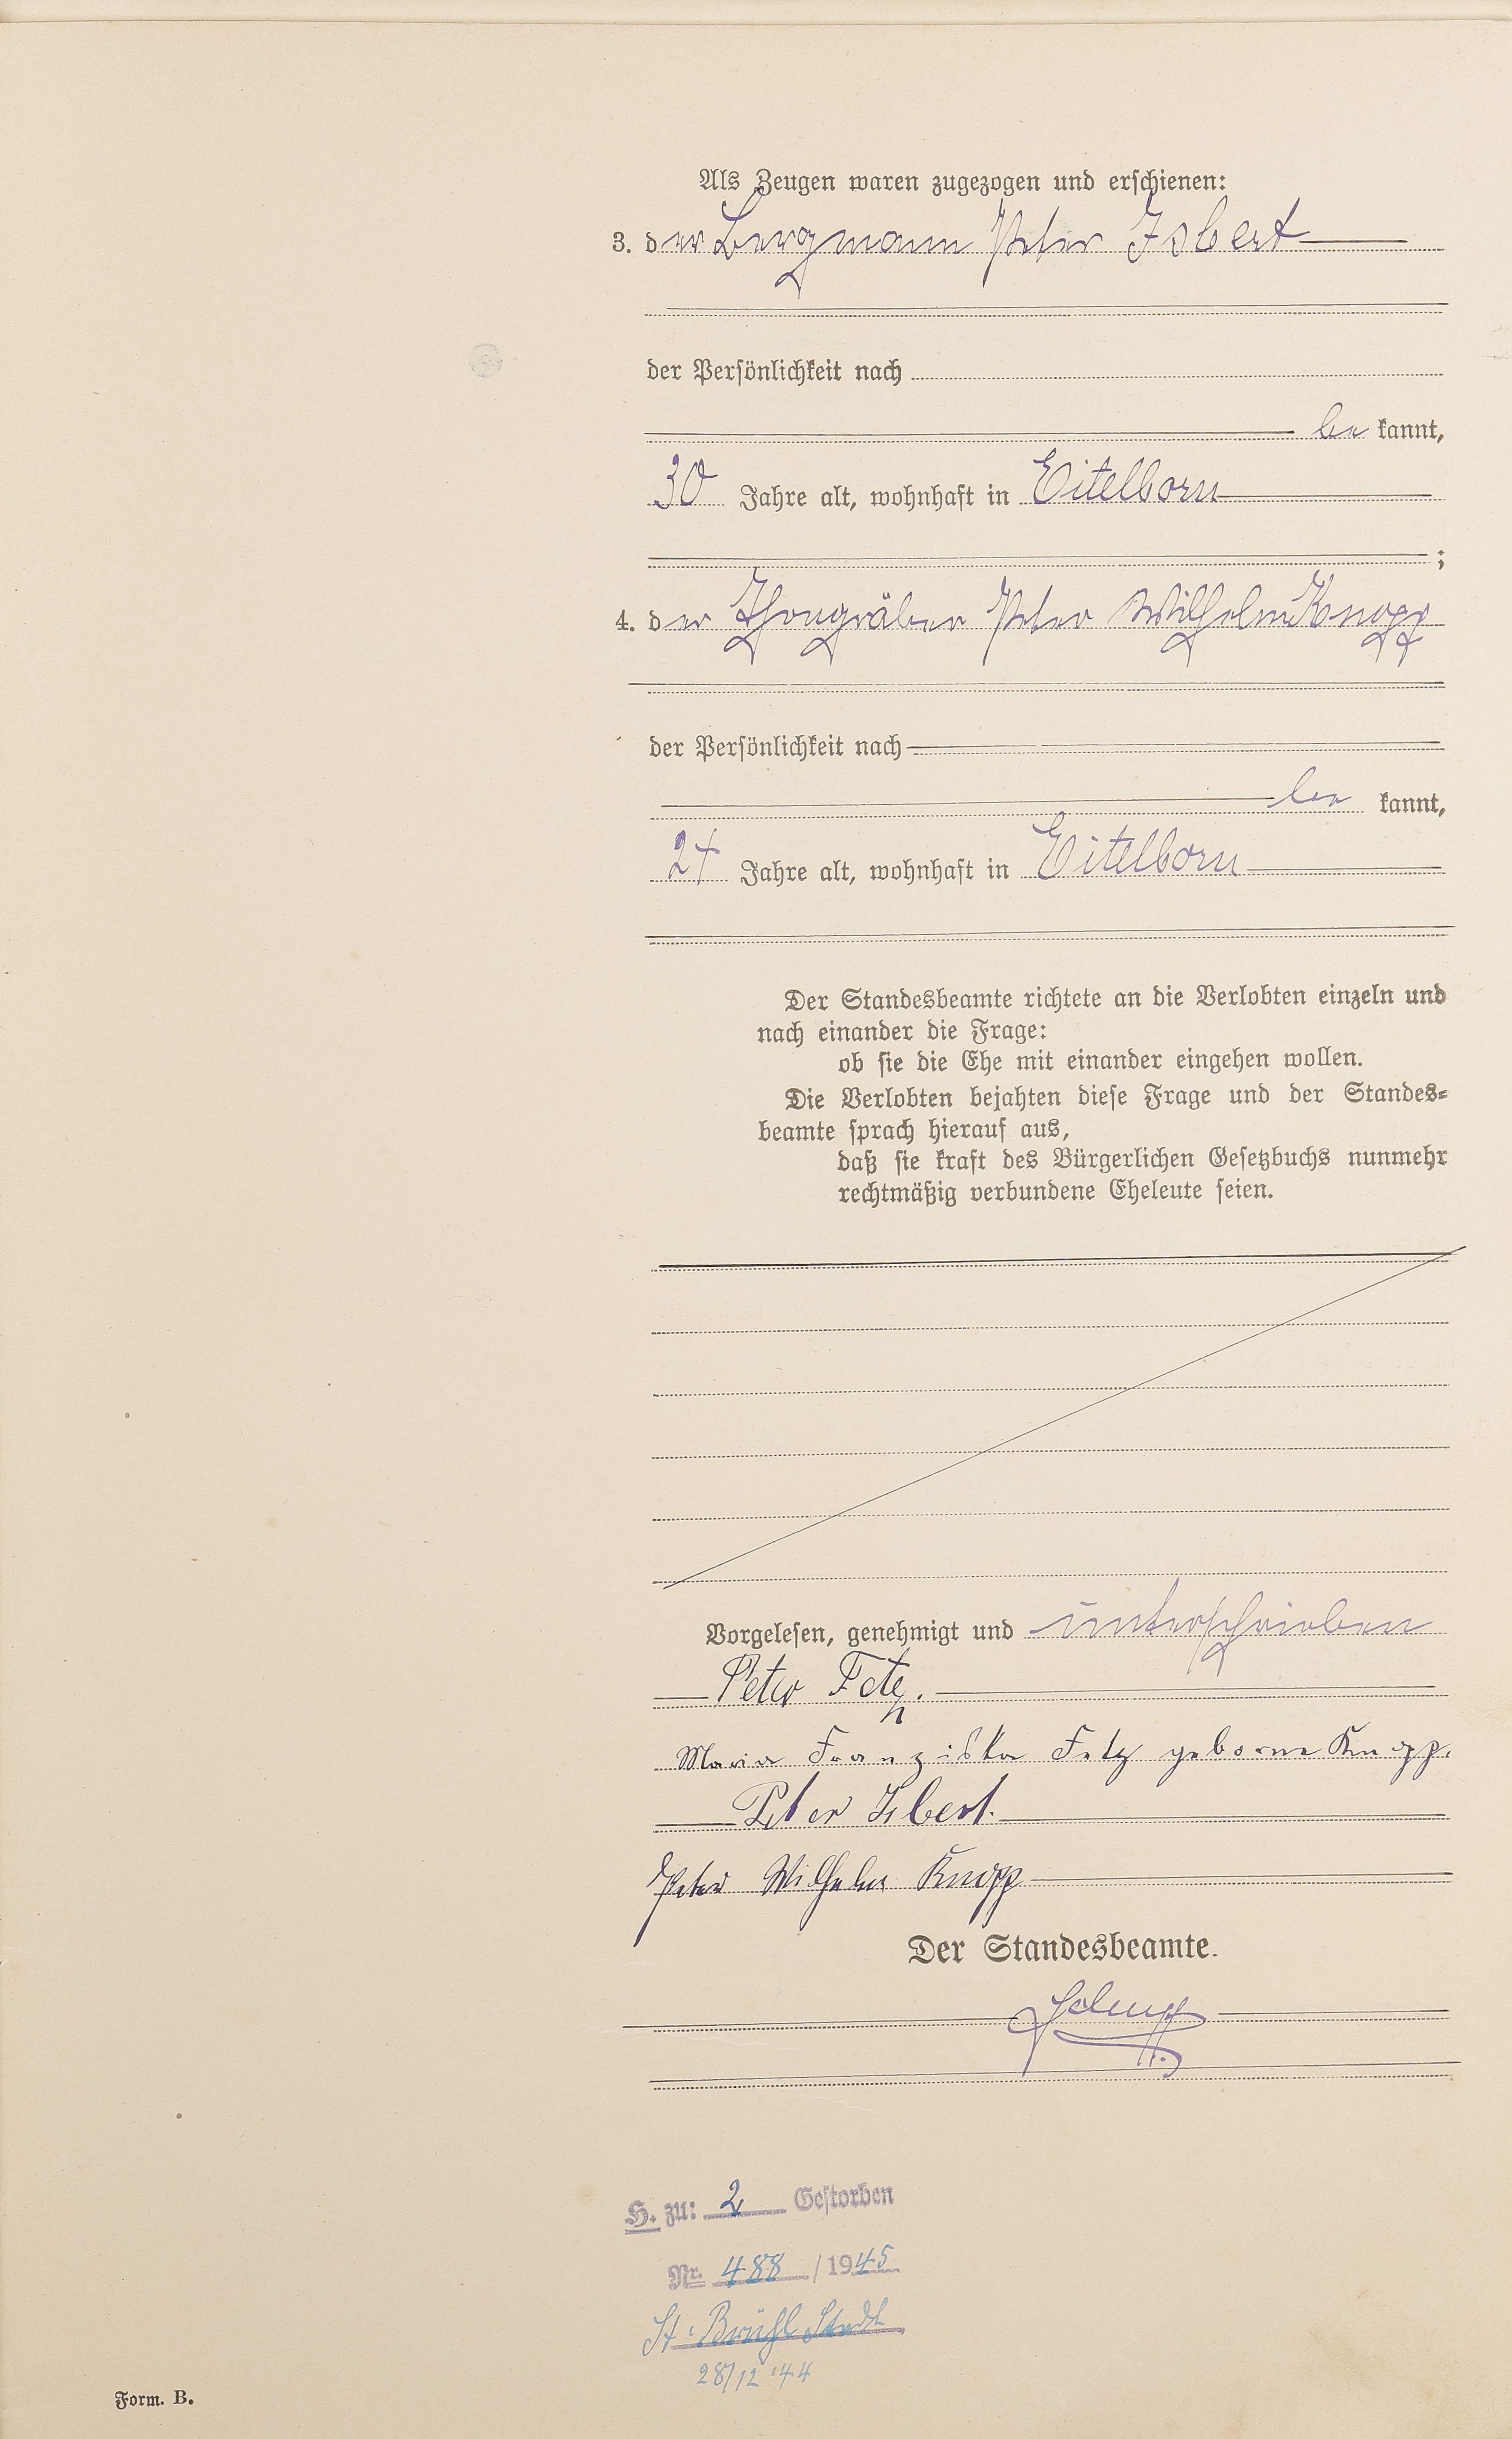 Als Zeugen waren zugezogen und erschienen:
3. der Bergmann Peter Isbert
der Persönlichkeit nach
be kannt,
30 Jahre alt, wohnhaft in Eitelborn
;
4. der Thongräber Peter Wilhelm Knopp
der Persönlichkeit nach
be kannt,
24 Jahre alt, wohnhaft in Eitelborn
Der Standesbeamte richtete an die Verlobten einzeln und
nach einander die Frage:
ob sie die Ehe mit einander eingehen wollen.
Die Verlobten bejahten diese Frage und der Standes-
beamte sprach hierauf aus,
daß sie kraft des Bürgerlichen Gesetzbuchs nunmehr
rechtmäßig verbundene Eheleute seien.
Vorgelesen, genehmigt und unterschrieben
Peter Fetz.
Maria Franziska Fetz geborne Knopp.
Peter Isbert.
Peter Wilhelm Knopp
Der Standesbeamte.
H. zu: 2 Gestorben
Nr. 488 / 1945
St. Brühl Stadt
28/12 '44
Form. B.